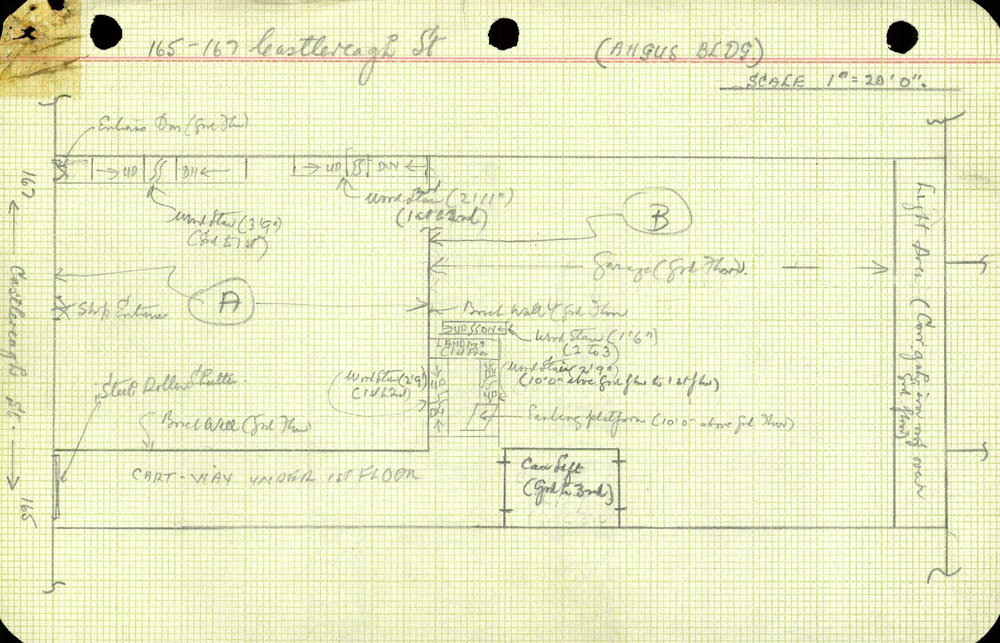 165-167 Castlereagh St
(ANGUS BLDG.)
SCALE 1"=20'0".
Entrance Door (Grd Floor)
UP
DN
UP
DN
Wood Stair (3'9")
(Grd to 1st)
Wood Stair (2'11")
(1st to 2nd)
B
Garage (Grd Floor).
167
Castlereagh St.
165
A
Shop Entrance
Brick Wall (Grd Floor
UP
DN
Wood Stair (1'6")
(2 to 3)
LANDING
1st Floor
Wood Stair (2'9")
(1st to 2nd)
UP
DN
Wood Stair 2'9"
(10'0" above Grd flr to 1st flr)
DN
UP
Landing platform (10'0" above Grd Floor)
Steel Roller Shutter
Brick Wall (Grd Floor
CART-WAY UNDER 1ST FLOOR
Car Lift
(Grd to 3rd)
Light Area (Corr. gal. iron roof over
Grd floor)